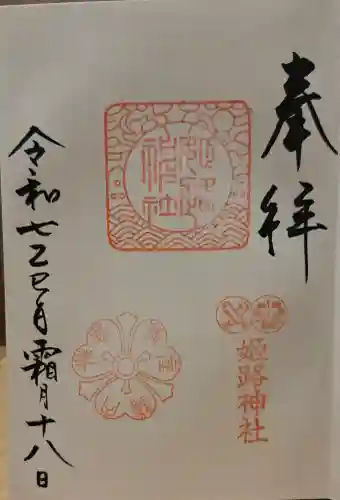 奉拝
姫路神社
姫路神社
令和七乙巳年霜月十八日